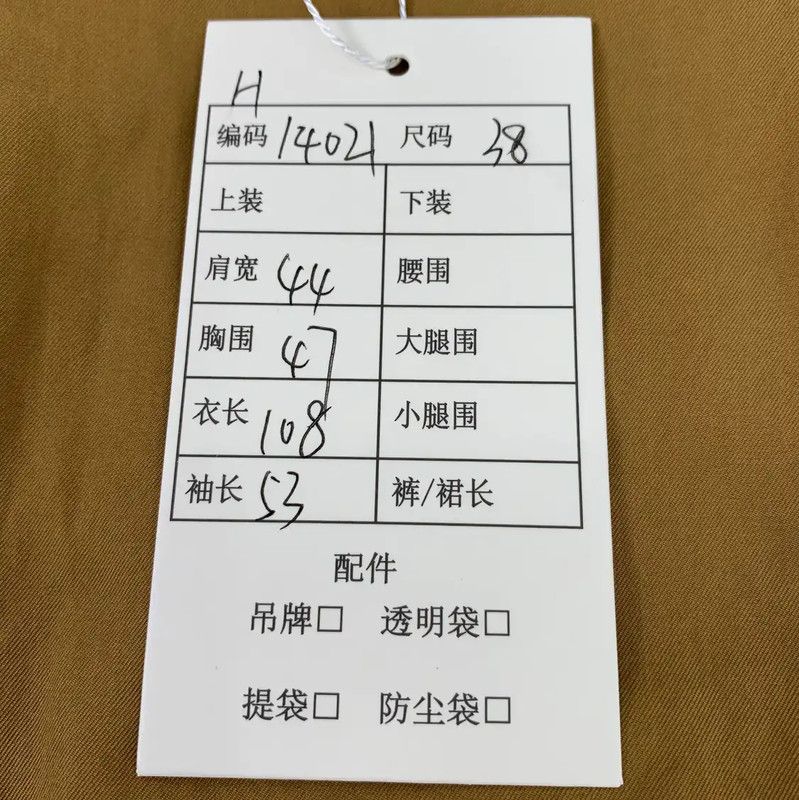 H
编码 14021 尺码 38
上装 下装
肩宽 44 腰围
胸围 47 大腿围
衣长 108 小腿围
袖长 53 裤/裙长
配件
吊牌□ 透明袋□
提袋□ 防尘袋□